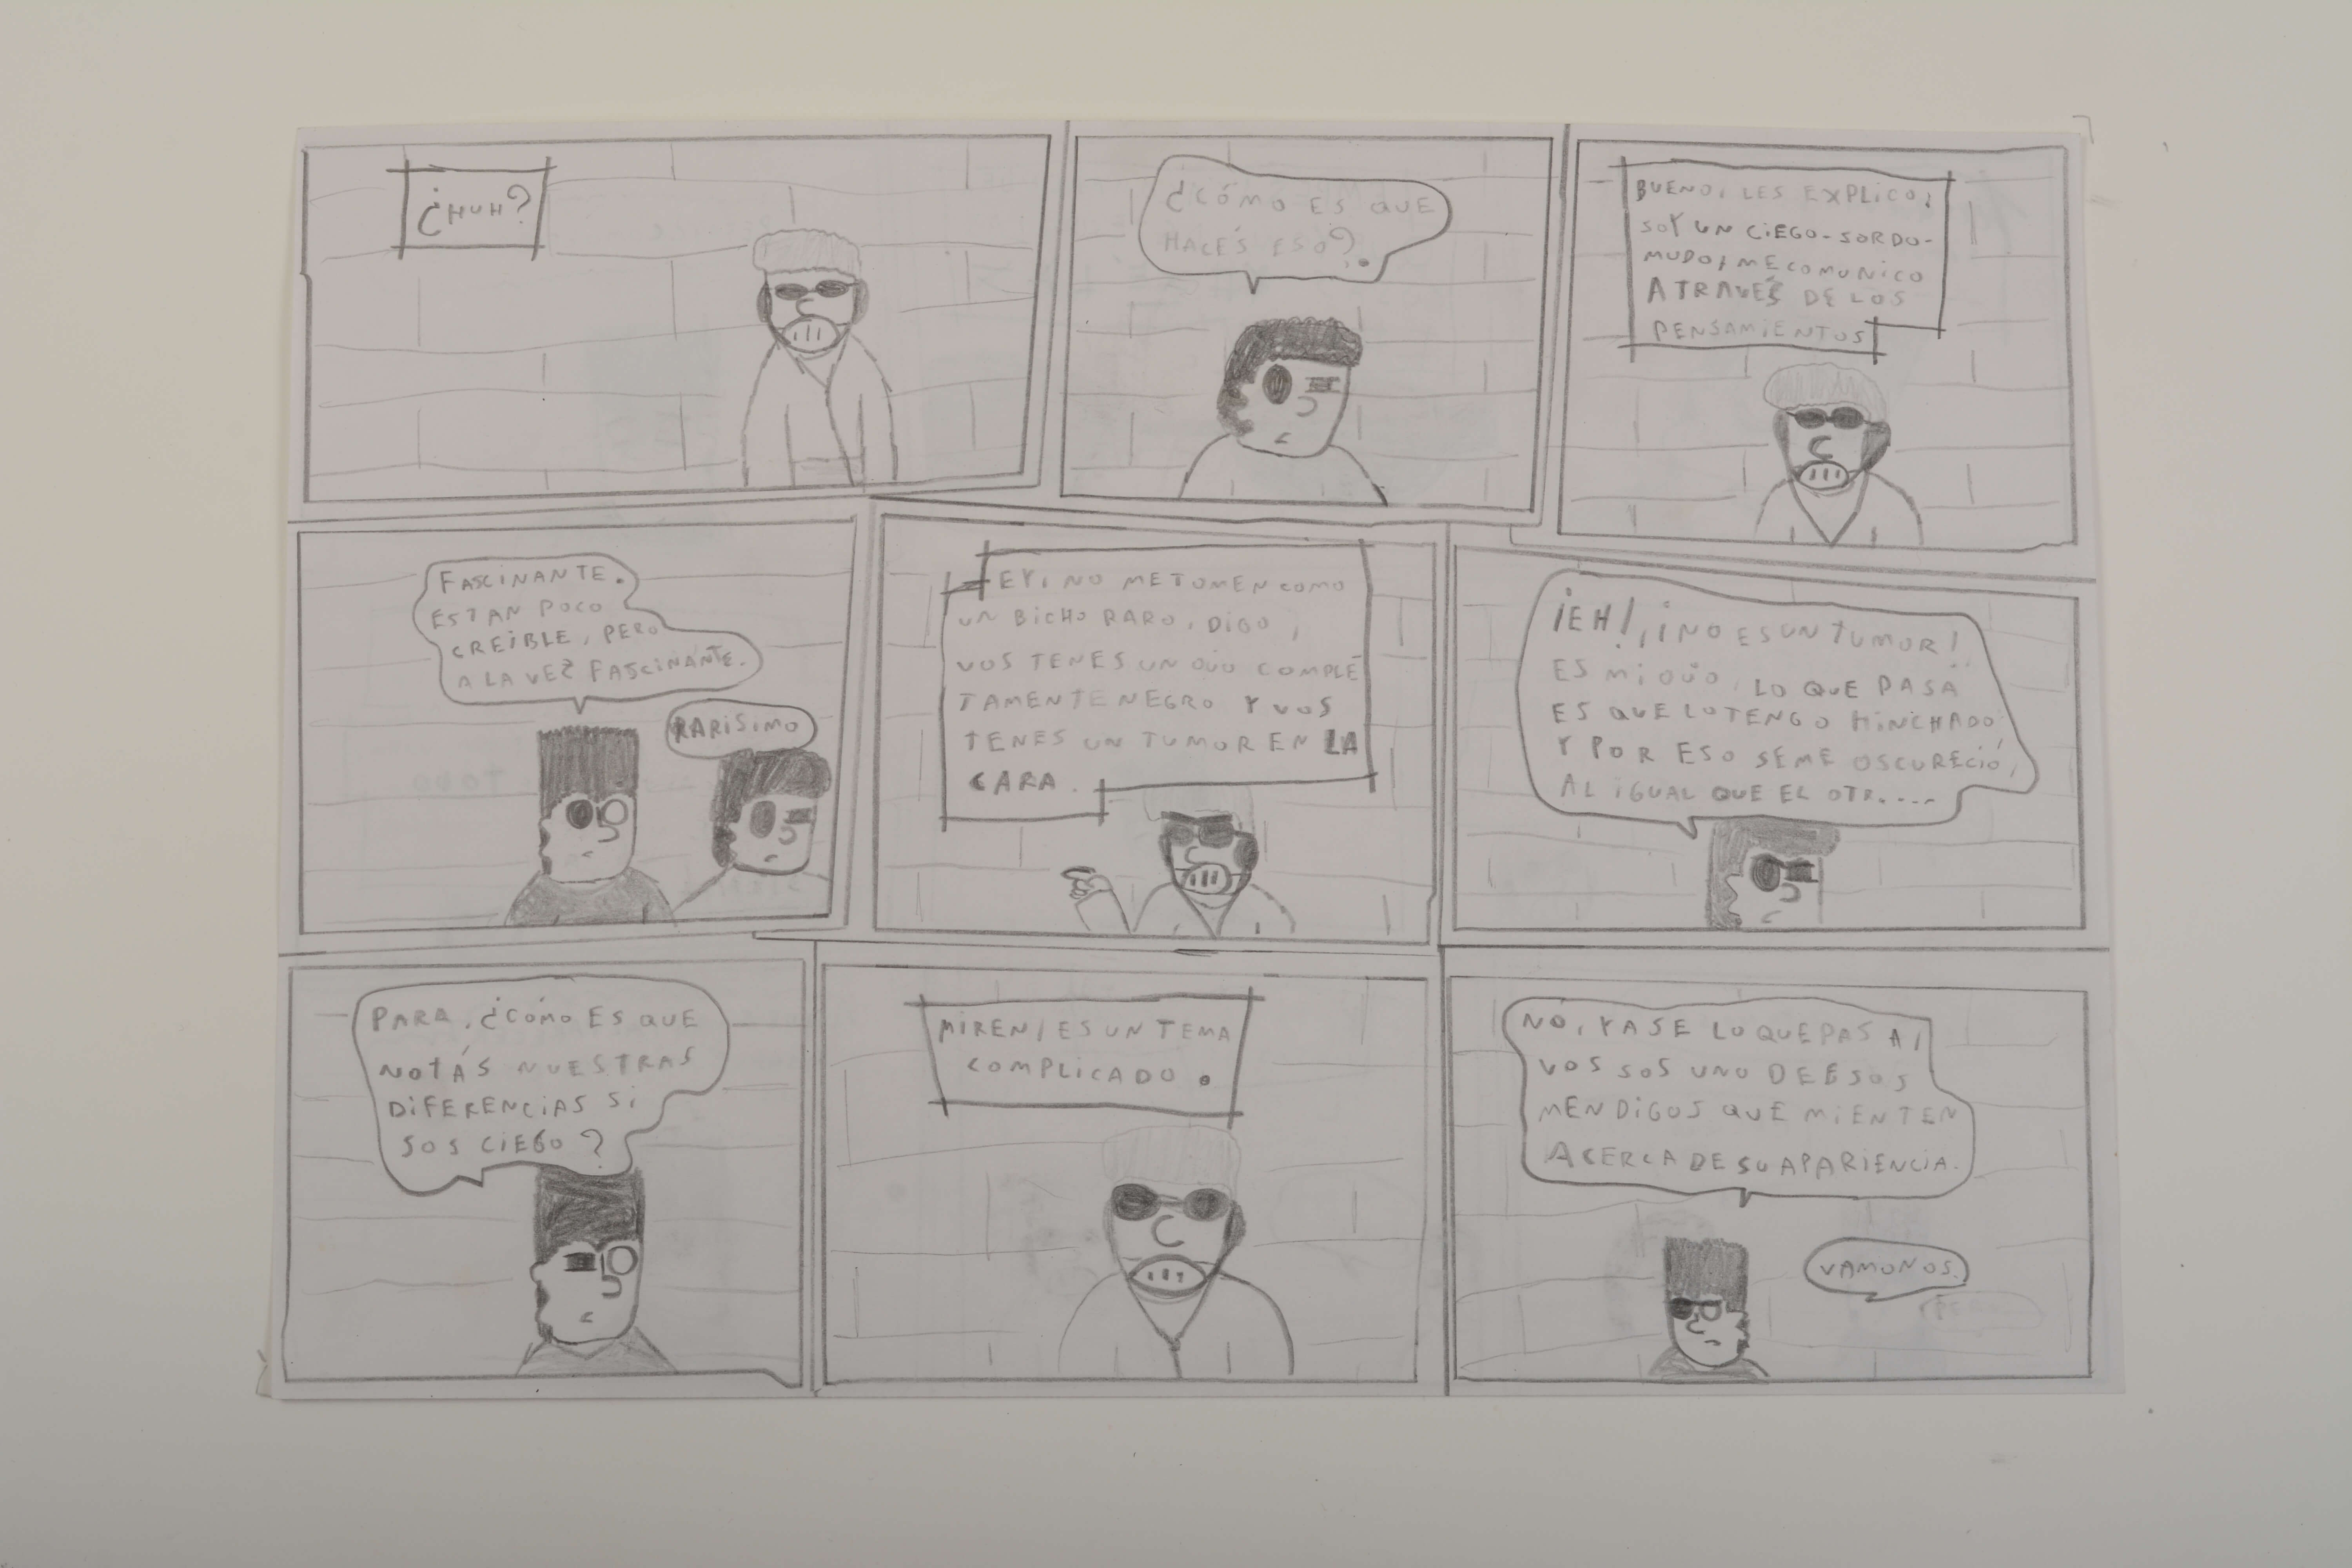 ¿HUH?
¿CÓMO ES QUE
HACÉS ESO?
BUENO, LES EXPLICO,
SOY UN CIEGO-SORDO-
MUDO, ME COMUNICO
A TRAVÉS DE LOS
PENSAMIENTOS
FASCINANTE.
ES TAN POCO
CREIBLE, PERO
A LA VEZ FASCINANTE.
RARISIMO
EY, NO ME TOMEN COMO
UN BICHO RARO, DIGO,
VOS TENES UN OJO COMPLE
TAMENTE NEGRO Y VOS
TENES UN TUMOR EN LA
CARA.
¡EH!, ¡NO ES UN TUMOR!
ES MI OJO, LO QUE PASA
ES QUE LO TENGO HINCHADO
Y POR ESO SE ME OSCURECIÓ,
AL IGUAL QUE EL OTR....
PARA, ¿CÓMO ES QUE
NOTÁS NUESTRAS
DIFERENCIAS SI
SOS CIEGO?
MIREN, ES UN TEMA
COMPLICADO.
NO, YA SE LO QUE PASA,
VOS SOS UNO DE ESOS
MENDIGOS QUE MIENTEN
ACERCA DE SU APARIENCIA.
VAMONOS.